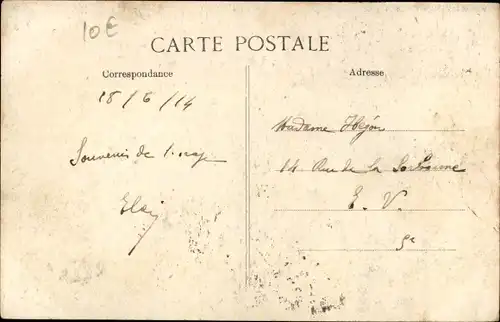 10€
CARTE POSTALE
Correspondance
Adresse
18/6/14
Souvenir de
Madame
14 Rue de la Sorbonne
E. V.
5e